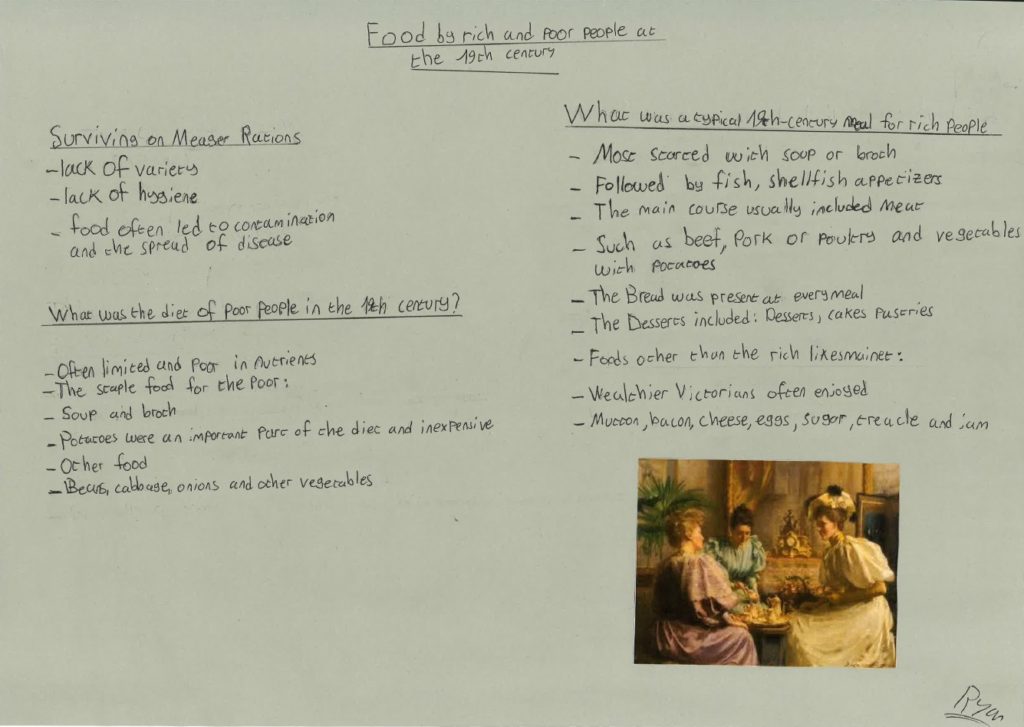 Food by rich and poor people at
the 19th century
Surviving on Meager Rations
- lack of variety
- lack of hygiene
- food often led to contamination
and the spread of disease
What was the diet of poor people in the 19th century?
- Often limited and poor in nutrients
- The staple food for the poor:
- Soup and broth
- Potatoes were an important part of the diet and inexpensive
- Other food
- Bears, cabbage, onions and other vegetables
What was a typical 19th-century meal for rich people
- Most started with soup or broth
- Followed by fish, shellfish appetizers
- The main course usually included meat
- Such as beef, pork or poultry and vegetables
with potatoes
- The Bread was present at every meal
- The Desserts included: Desserts, cakes Pastries
- Foods other than the rich likes:
- Wealthier Victorians often enjoyed
- Mutton, bacon, cheese, eggs, sugar, treacle and jam
Ryan